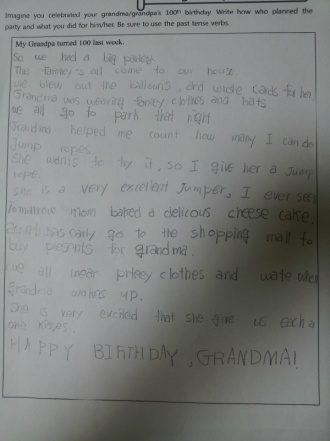 Imagine you celebrated your grandma/grandpa's 100th birthday. Write how who planned the
party and what you did for him/her. Be sure to use the past tense verbs.
My Grandpa turned 100 last week.
So we had a big party.
The family is all come to our house.
We blew out the balloons, and wrote cards for her.
Grandma was wearing fancy clothes and hats.
We all go to park that night
Grandma helped me count how many I can do
jump ropes.
She wants to try it, so I give her a jump
rope.
She is a very excellent jumper, I ever seen
Tomorrow mom baked a delicous cheese cake.
has early go to the shopping mall to
buy presents for grandma.
We all wear pretey clothes and wate when
grandma wakes up.
She is very excited that she give us each a
one kisses.
HAPPY BIRTHDAY, GRANDMA!